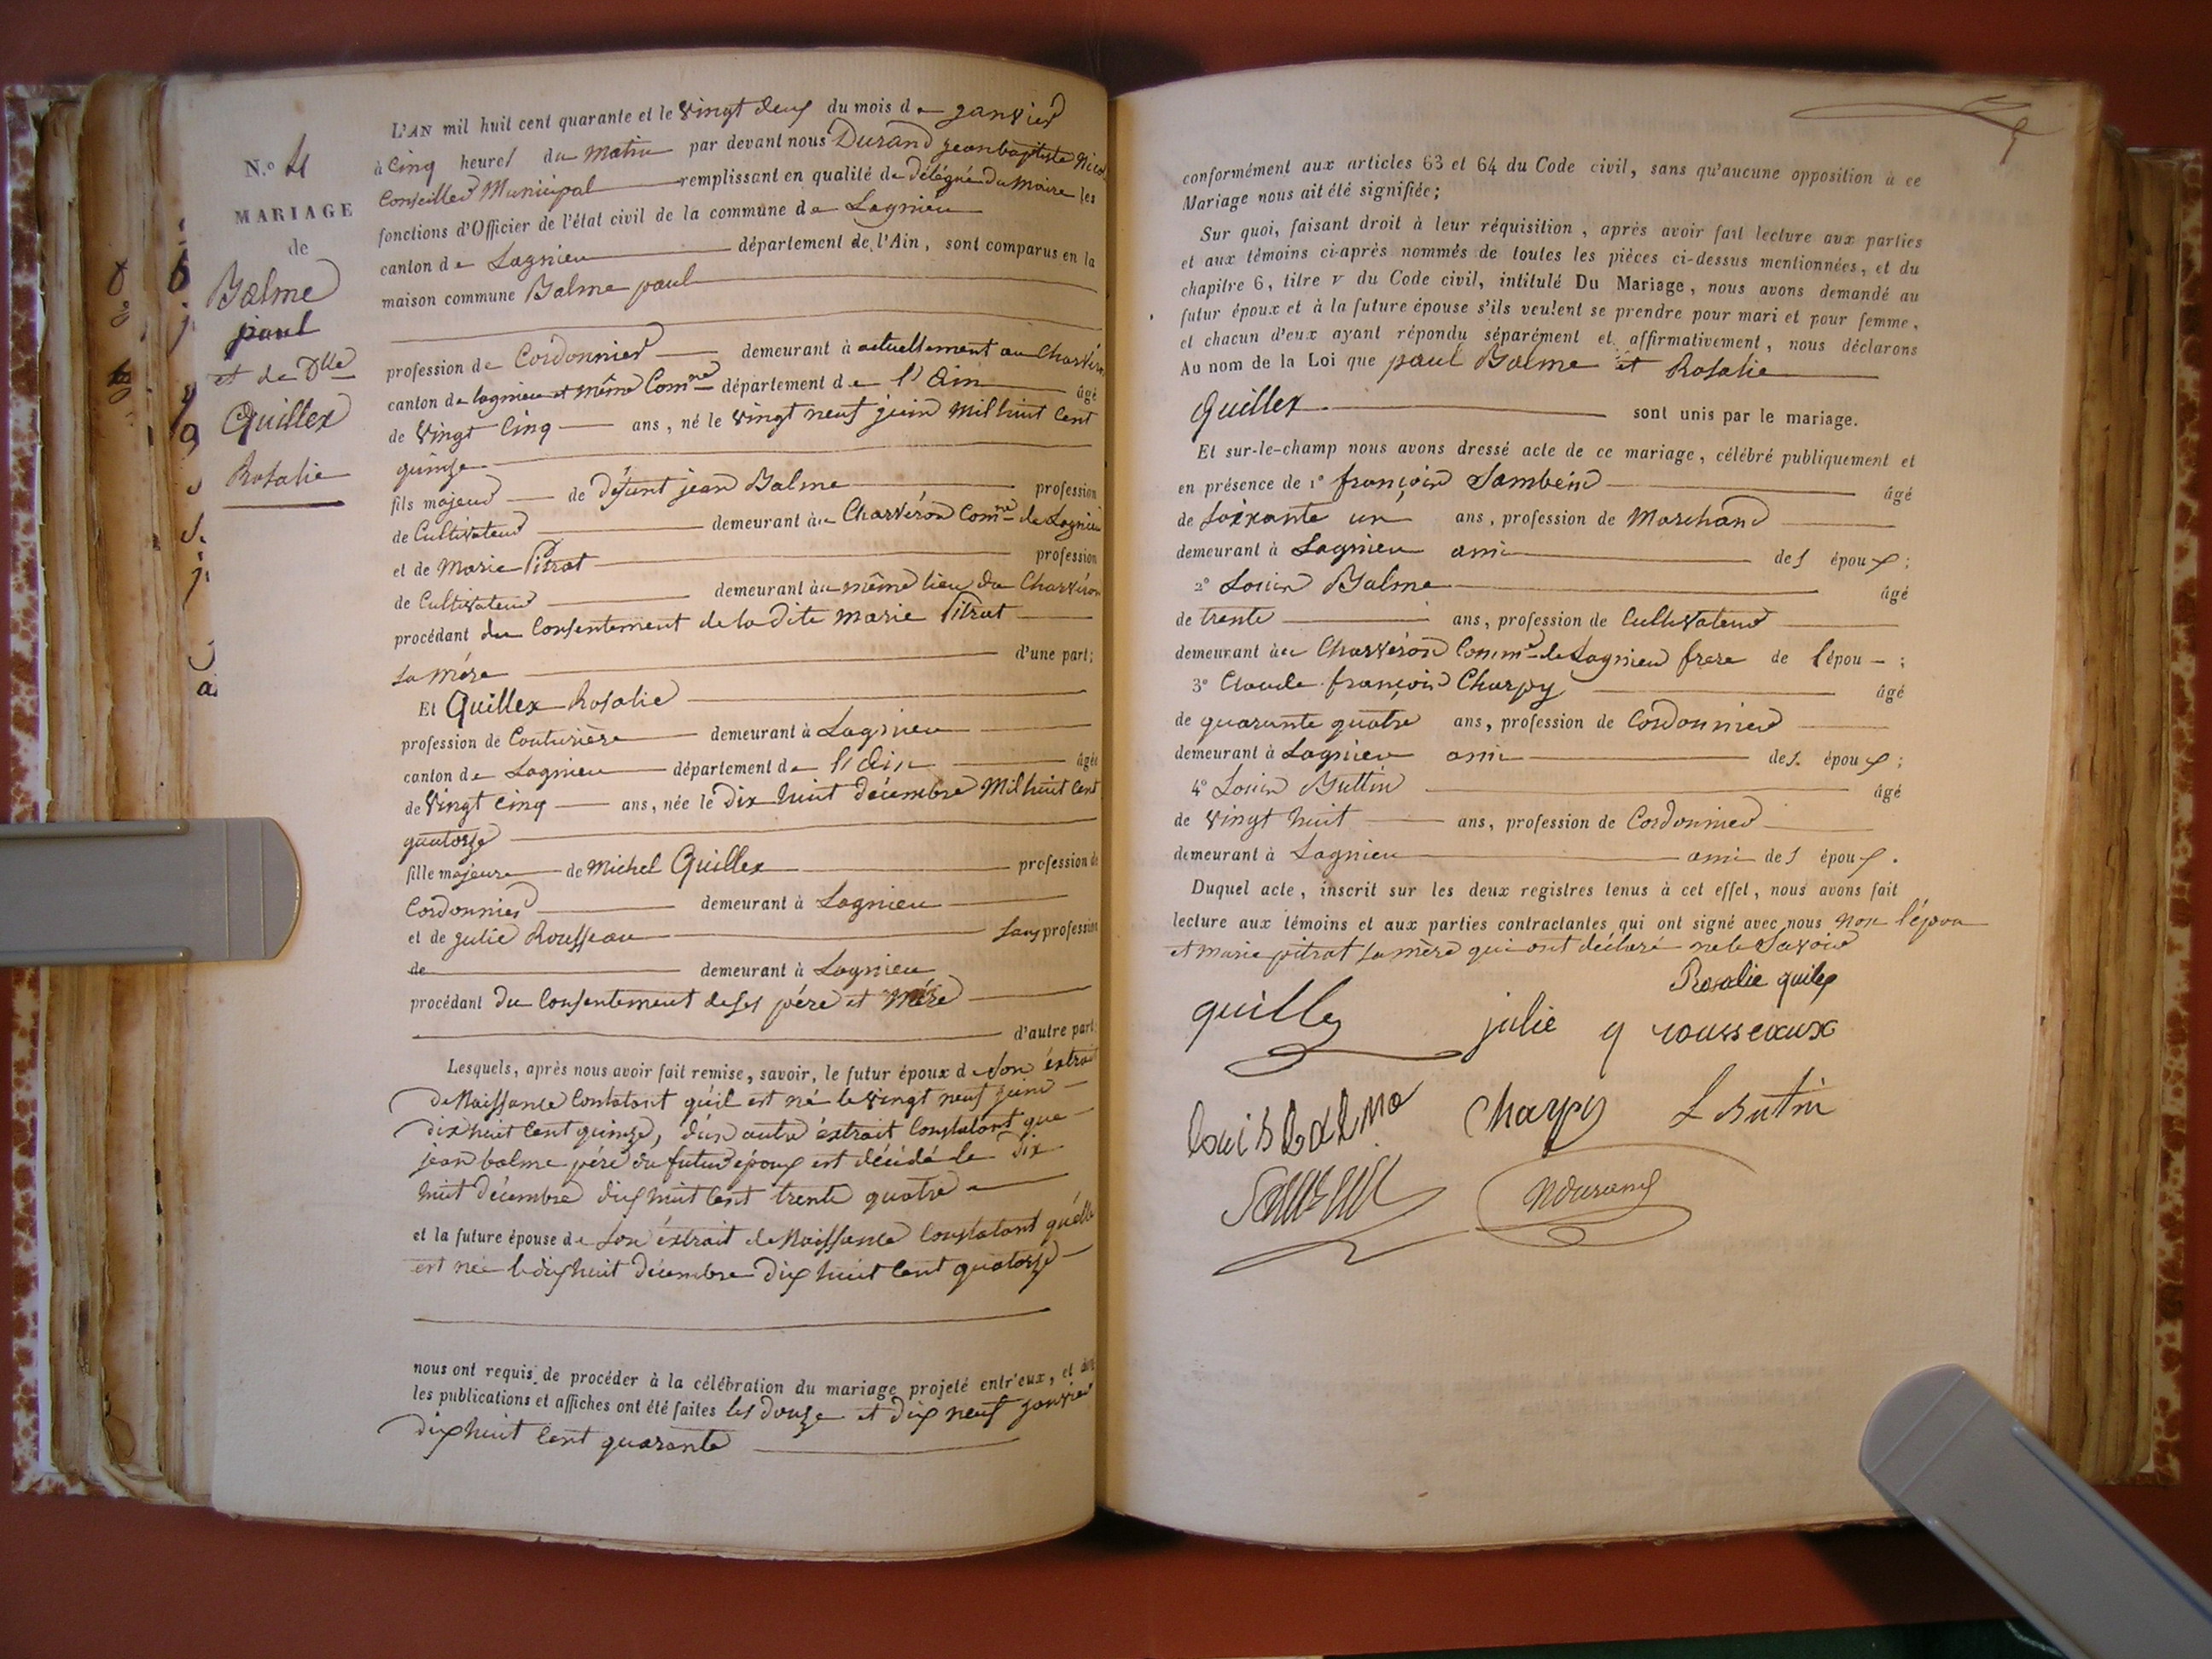 N.º 4
MARIAGE
de
Balme
paul
et de Dlle
Quillex
Rosalie
L'AN mil huit cent quarante et le vingt deux du mois de janvier
à cinq heures du matin par devant nous Durand jean baptiste
Conseiller Municipal remplissant en qualité de délégué du maire les
fonctions d'Officier de l'état civil de la commune de Lagnieu
canton de Lagnieu département de l'Ain, sont comparus en la
maison commune Balme paul
profession de Cordonnier demeurant à actuellement au Charvéron
canton de lagnieu et même Comne département de l'Ain âgé
de vingt cinq ans, né le vingt neuf juin mil huit cent
quinze
fils majeur de défunt jean Balme profession
de Cultivateur demeurant au Charvéron Comne de Lagnieu
et de Marie Pitrat profession
de Cultivateur demeurant au même lieu du Charvéron
procédant du consentement de la dite marie Pitrat
sa mère d'une part;
Et Quillex Rosalie
profession de Couturière demeurant à Lagnieu
canton de Lagnieu département de l'Ain âgée
de vingt cinq ans, née le dix huit décembre mil huit cent
quatorze
fille majeure de Michel Quillex profession de
Cordonnier demeurant à Lagnieu
et de julie Rousseau sans profession
de demeurant à Lagnieu
procédant du consentement de ses père et mère
d'autre part;
Lesquels, après nous avoir fait remise, savoir, le futur époux de son éxtrait
de Naissance constatant qu'il est né le vingt neuf juin
dix huit cent quinze, d'un autre éxtrait constatant que
jean balme père du futur époux est décédé le dix
huit décembre dix huit cent trente quatre
et la future épouse de son éxtrait de Naissance constatant qu'elle
est née le dix huit décembre dix huit cent quatorze
nous ont requis de procéder à la célébration du mariage projeté entr'eux, et dont
les publications et affiches ont été faites les douze et dix neuf janvier
dix huit cent quarante
conformément aux articles 63 et 64 du Code civil, sans qu'aucune opposition à ce
Mariage nous ait été signifiée;
Sur quoi, faisant droit à leur réquisition, après avoir fait lecture aux parties
et aux témoins ci-après nommés de toutes les pièces ci-dessus mentionnées, et du
chapitre 6, titre v du Code civil, intitulé Du Mariage, nous avons demandé au
futur époux et à la future épouse s'ils veulent se prendre pour mari et pour femme,
et chacun d'eux ayant répondu séparément et affirmativement, nous déclarons
Au nom de la Loi que paul Balme et Rosalie
Quillex sont unis par le mariage.
Et sur-le-champ nous avons dressé acte de ce mariage, célébré publiquement et
en présence de 1º françois Sambein âgé
de soixante un ans, profession de Marchand
demeurant à Lagnieu ami des époux;
2º Louis Balme âgé
de trente ans, profession de Cultivateur
demeurant au Charvéron Comme de Lagnieu frere de l'épou;
3º Claude françois Charpy âgé
de quarante quatre ans, profession de Cordonnier
demeurant à Lagnieu ami des époux;
4º Louis Buttin âgé
de vingt huit ans, profession de Cordonnier
demeurant à Lagnieu ami des époux.
Duquel acte, inscrit sur les deux registres tenus à cet effet, nous avons fait
lecture aux témoins et aux parties contractantes qui ont signé avec nous non l'épou
et marie pitrat sa mère qui ont déclaré ne le savoir
Rosalie quilex
quillex julie rousseaux
louis balme Charpy L Butin
NDurand